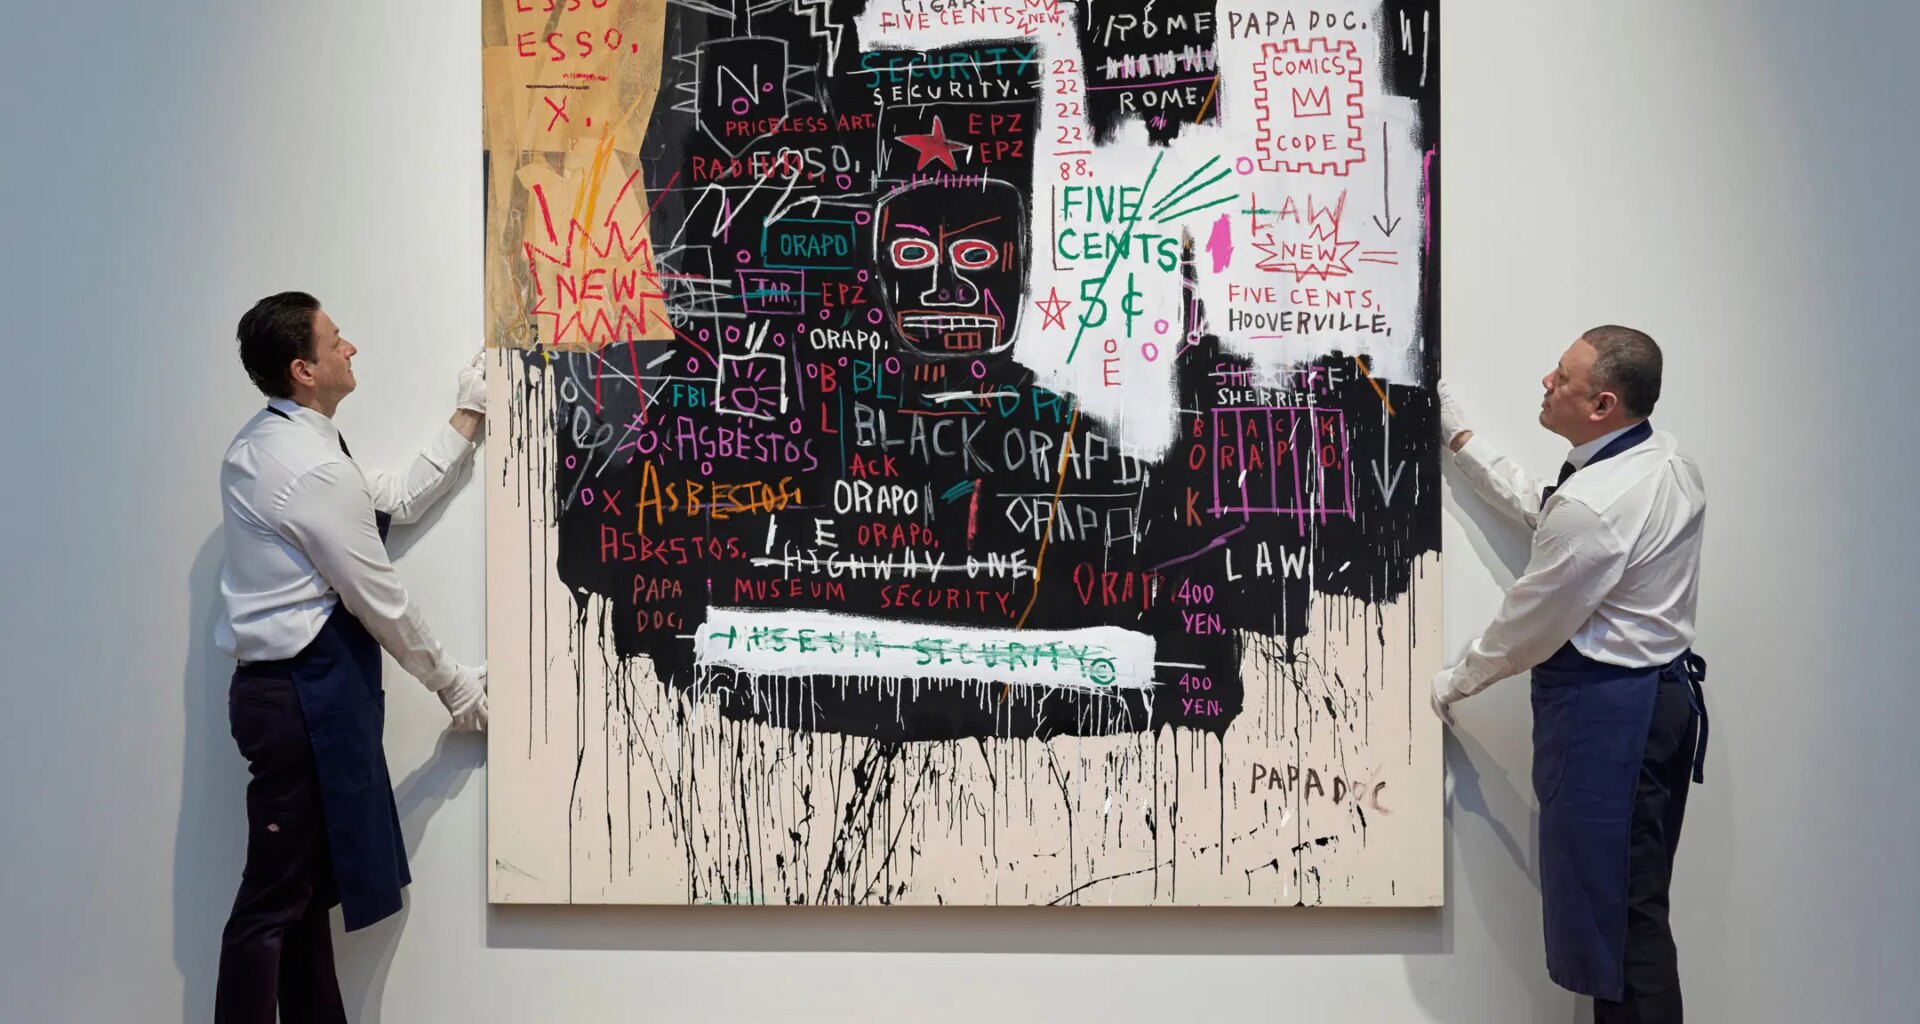 ESSO
ESSO.
X.
NEW
N.
PRICELESS ART.
ESSO.
CIGAR.
FIVE CENTS
NEW,
SECURITY
SECURITY.
EPZ
EPZ
22
22
22
22
88.
ROME
ROME.
PAPA DOC.
COMICS
CODE
LAW
NEW
FIVE CENTS,
HOOVERVILLE,
FIVE
CENTS
5¢
O
E
ORAPO
TAR.
EPZ
ORAPO.
FBI
ASBESTOS
X ASBESTOS.
ASBESTOS.
B
L
BLACK ORAPO
ACK
ORAPO
E ORAPO.
ORAPO
HIGHWAY ONE.
PAPA
DOC.
MUSEUM SECURITY.
MUSEUM SECURITY ©
SHERRIFF
SHERRIFF
BLACK
ORAPO.
K
LAW
ORAP
400
YEN.
400
YEN.
PAPA DOC